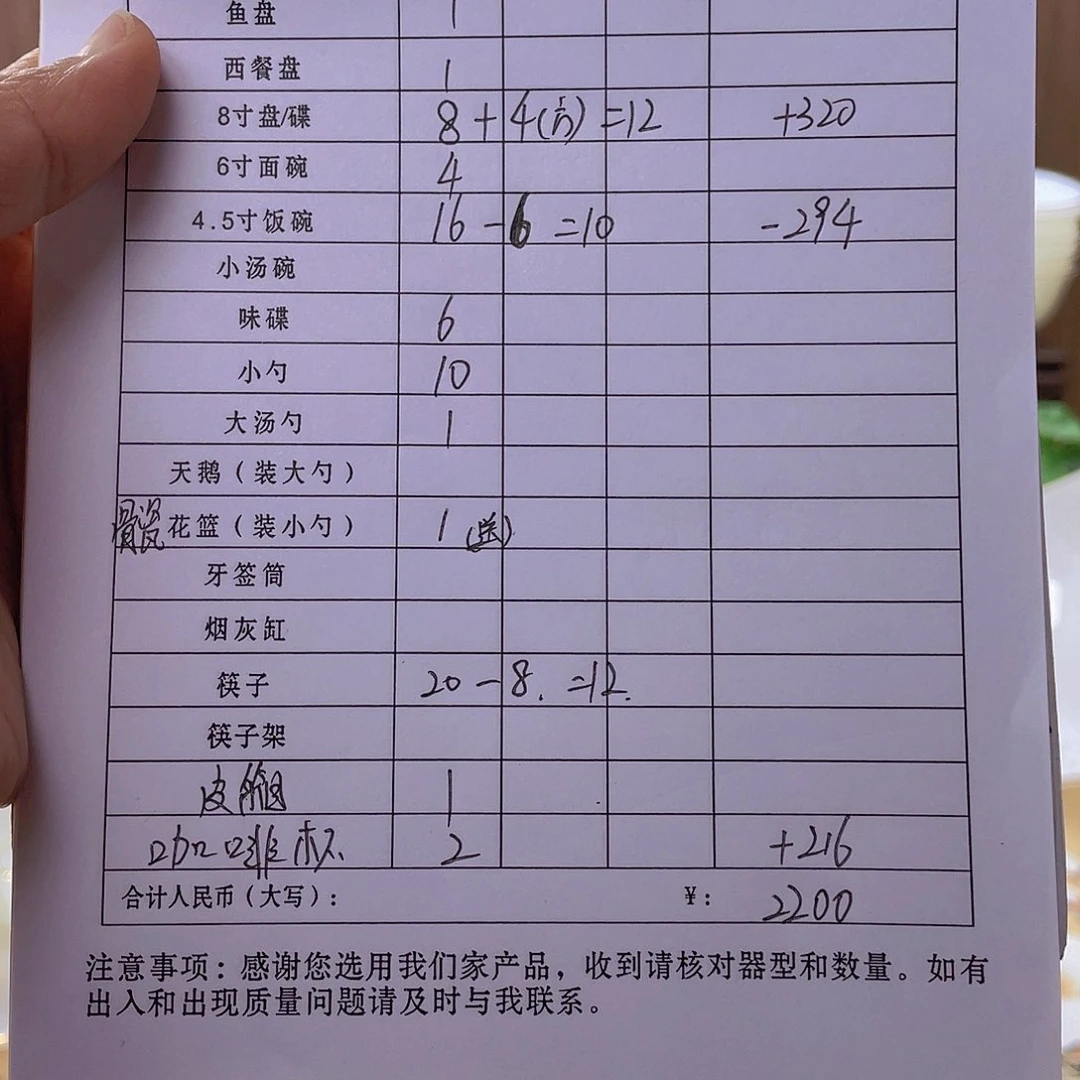 鱼盘 1
西餐盘 1
8寸盘/碟 8+4(方)=12 +320
6寸面碗 4
4.5寸饭碗 16-6=10 -294
小汤碗
味碟 6
小勺 10
大汤勺 1
天鹅(装大勺)
骨瓷花篮(装小勺) 1(送)
牙签筒
烟灰缸
筷子 20-8.=12.
筷子架
皮箱 1
咖啡杯 2 +216
合计人民币(大写): ¥: 2200
注意事项:感谢您选用我们家产品,收到请核对器型和数量。如有
出入和出现质量问题请及时与我联系。